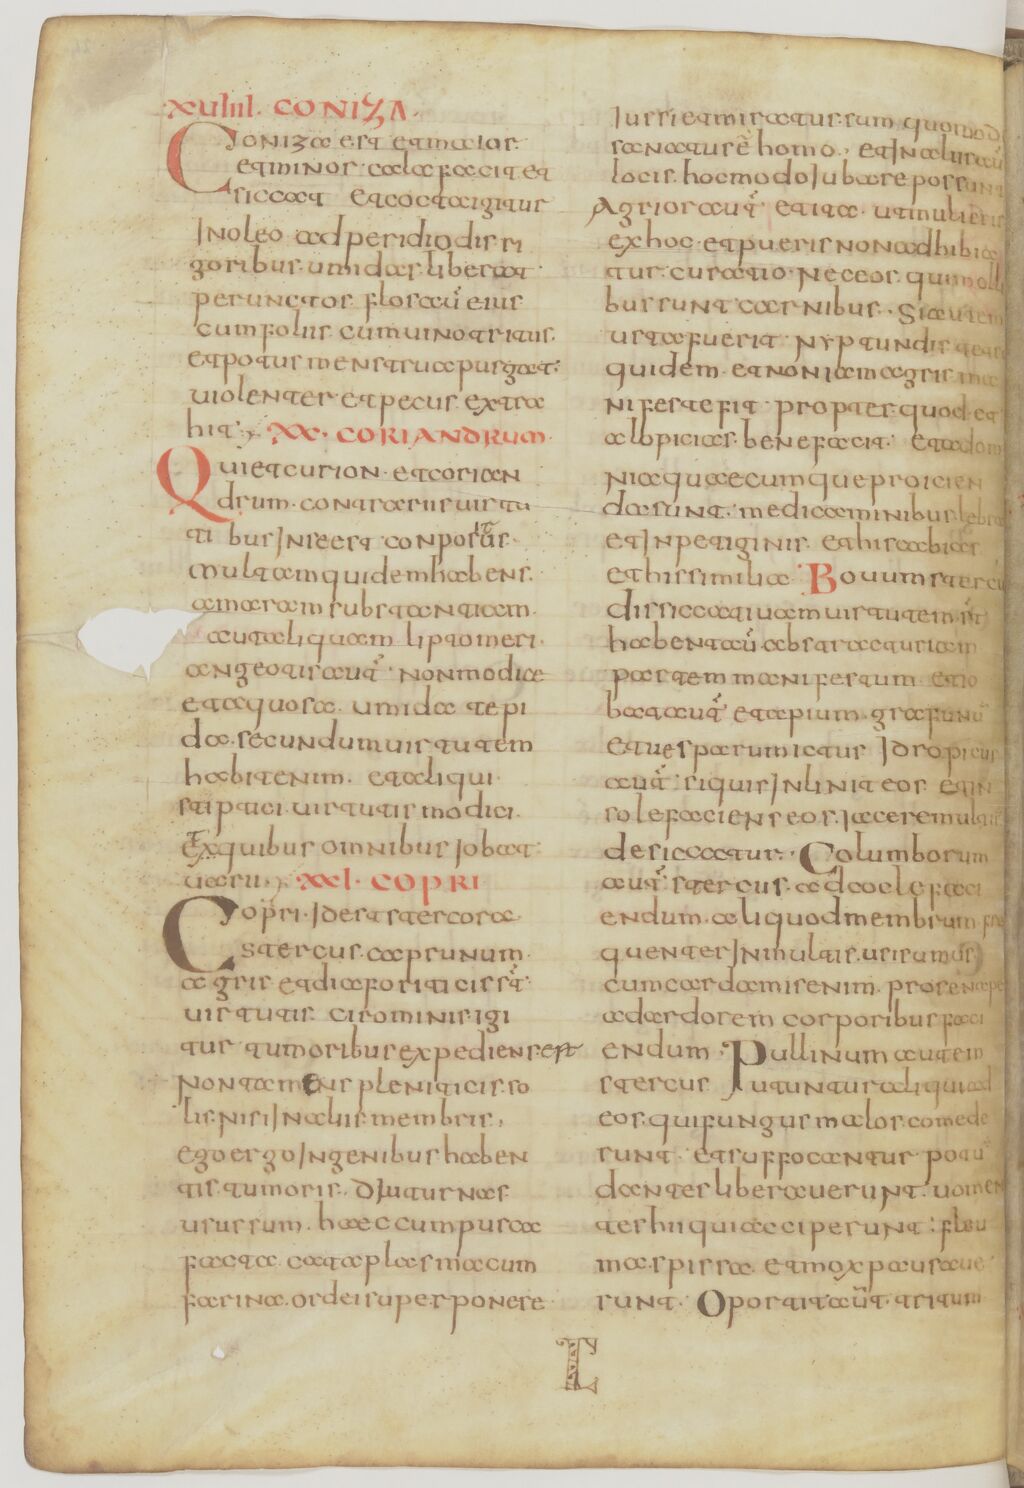 XVIIII. CONIZA.
Coniza est et maior
et minor. cala facit et
siccat et cocta igitur
In oleo ad peridiodis ri
goribus umidas liberat
perunctos flos aut eius
cum foliis cum uino tritus.
et potus menstrua purgat.
uiolenter et pecus extra
hit. XX. CORIANDRUM
Qui et curion. et corian
drum. contrariis uirtu
tibus Inieest conpositus
multam quidem habens.
amaram substantiam.
acutaliquam liptomeri.
angeotis aut. non modica
et aquosa umida tepi
da. secundum uirtutem
habit enim. et aliqui
stiptici uirtutis modici.
Ex quibus omnibus Iobat
uaru. XXI. COPRI
Copri. Id est stercora
Stercus. caprunum
agris et diaforiticis st
uirtutis. cirominis igi
tur tumoribus expediens est
Non tamens pleniticis so
lis. nisi In aliis membris,
ego ergo Ingenibus haben
tis tumoris. diuturnas
usus sum. haec cum pusca
facta. cataplasma cum
farina. ordei superponere
Iussi et miratur. sum quomod
sanatus e homo. et In aliis aut
locis. hoc modo Iubare possunt
Agrior aut et ita ut mulieris
ex hoc et pueris non adhibia
tur curatio. nec eos qui molli
bus sunt carnibus. Si autem
usta fuerit Nyptundis
quidem et non iam agris ma
nifeste fit propter quod et
alopicias. benefacit et ad om
nia quaecumque proicien
da sunt. medicaminibus lebra
et Inpetiginis et his abias
et his similia Bouum stercu
dissiccatiuam uirtutem st
habent au abstracturiam
partem manifestum et io
bat aut et apium. grafunu
et uesparum ictus Idropicus
aut siquis Inlinit eos et in
sole faciens eos Iacere multum
desiccatur. Columborum
aut stercus ad cole faci
endum aliquod membrum fre
quenter In multis. usi sumus
cum cardamis enim pro senape
ad ardorem corporibus faci
endum. Pullinum autem
stercus Iutuntur aliqui ad
eos. qui fungus malos. comede
runt. et suffocantur potu
dantes liberauerunt. uomen
tes hii qui acciperunt fleu
ma spissa et mox pausaue
runt. Oportit aut. tritum